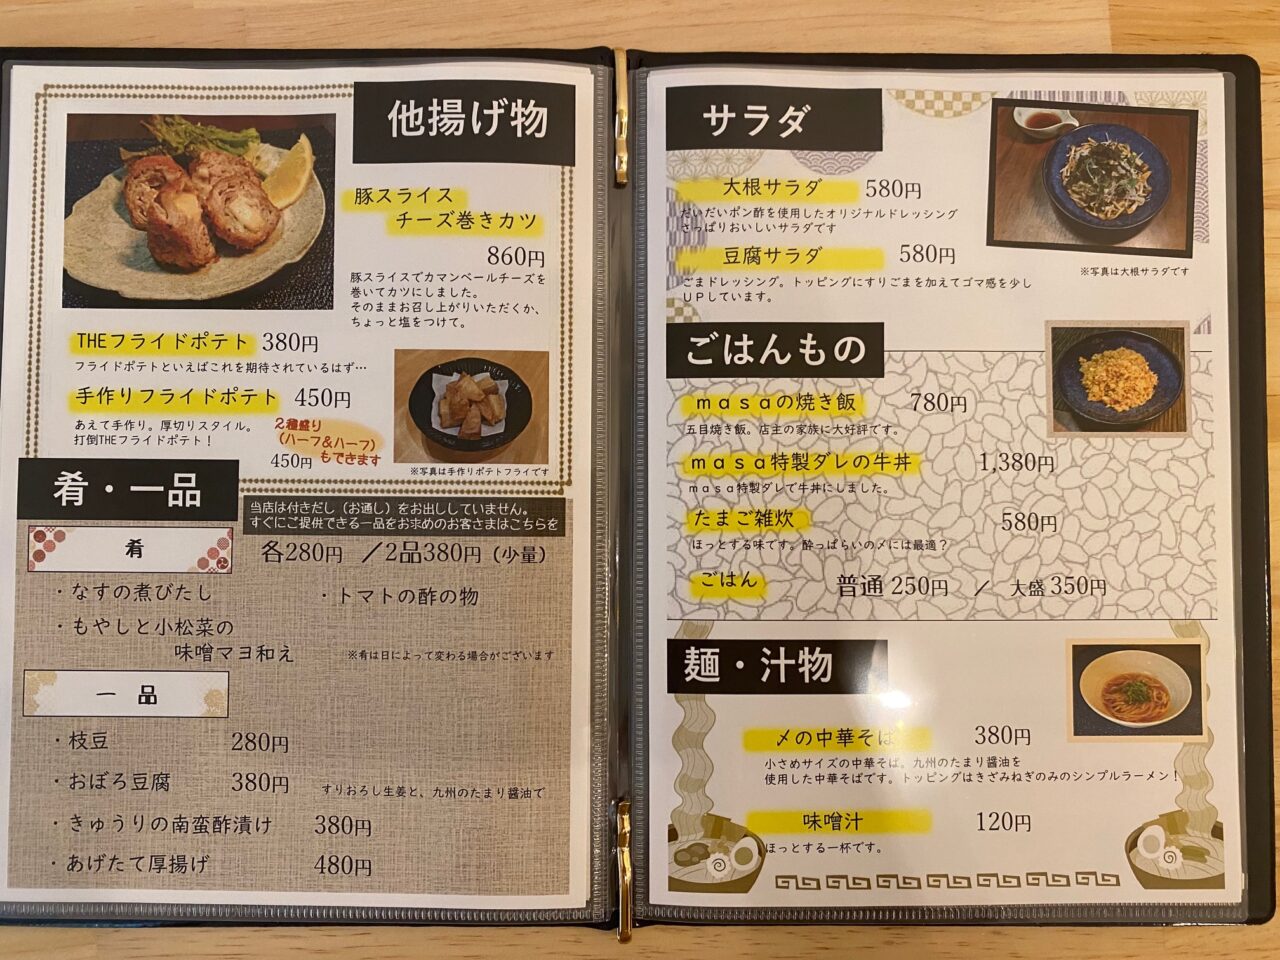 他揚げ物
豚スライス
チーズ巻きカツ
860円
豚スライスでカマンベールチーズを
巻いてカツにしました。
そのままお召し上がりいただくか、
ちょっと塩をつけて。
THEフライドポテト 380円
フライドポテトといえばこれを期待されているはず…
手作りフライドポテト 450円
あえて手作り。厚切りスタイル。
打倒THEフライドポテト！
2種盛り
（ハーフ&ハーフ）
もできます
450円
※写真は手作りポテトフライです
肴・一品
当店は付きだし（お通し）をお出ししていません。
すぐにご提供できる一品をお求めのお客さまはこちらを
肴
各280円 ／2品380円（少量）
・なすの煮びたし
・トマトの酢の物
・もやしと小松菜の
味噌マヨ和え
※肴は日によって変わる場合がございます
一品
・枝豆 280円
・おぼろ豆腐 380円 すりおろし生姜と、九州のたまり醤油で
・きゅうりの南蛮酢漬け 380円
・あげたて厚揚げ 480円
サラダ
大根サラダ 580円
だいだいポン酢を使用したオリジナルドレッシング
さっぱりおいしいサラダです
豆腐サラダ 580円
ごまドレッシング。トッピングにすりごまを加えてゴマ感を少し
ＵＰしています。
※写真は大根サラダです
ごはんもの
ｍａｓａの焼き飯 780円
五目焼き飯。店主の家族に大好評です。
ｍａｓａ特製ダレの牛丼 1,380円
ｍａｓａ特製ダレで牛丼にしました。
たまご雑炊 580円
ほっとする味です。酔っぱらいの〆には最適？
ごはん 普通 250円 ／ 大盛 350円
麺・汁物
〆の中華そば 380円
小さめサイズの中華そば。九州のたまり醤油を
使用した中華そばです。トッピングはきざみねぎのみのシンプルラーメン！
味噌汁 120円
ほっとする一杯です。